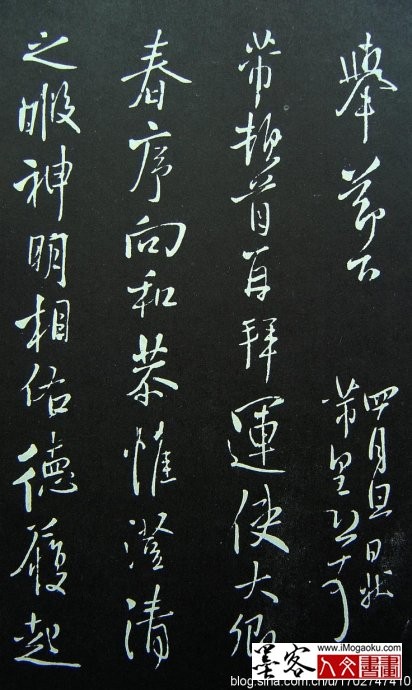 舉 節下
四月旦日狀
芾皇恐
芾頓首再拜運使大卿
春序向和恭惟澄清
之暇神明相佑德履起
www.iMogaoku.com
墨客 人文書畫
blog.sina.com.cn/u/1702747410